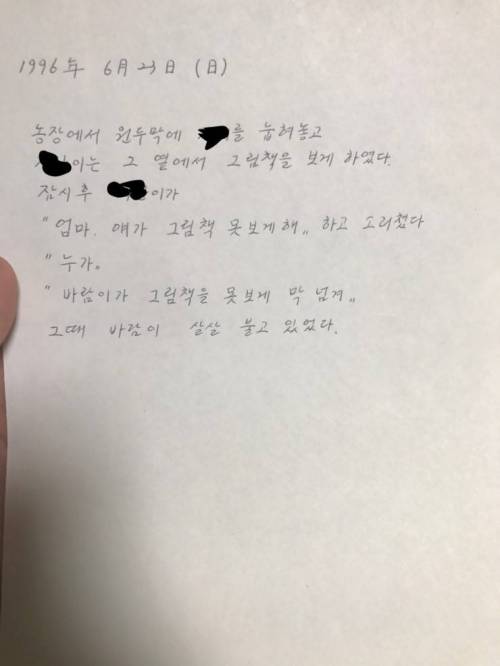 1996年 6月 23日 (日)
농장에서 원두막에 를 눕혀놓고
이는 그 옆에서 그림책을 보게 하였다.
잠시후 이가
"엄마. 얘가 그림책 못보게해„ 하고 소리쳤다
"누가.
"바람이가 그림책을 못보게 막 넘겨„
그때 바람이 살살 불고 있었다.